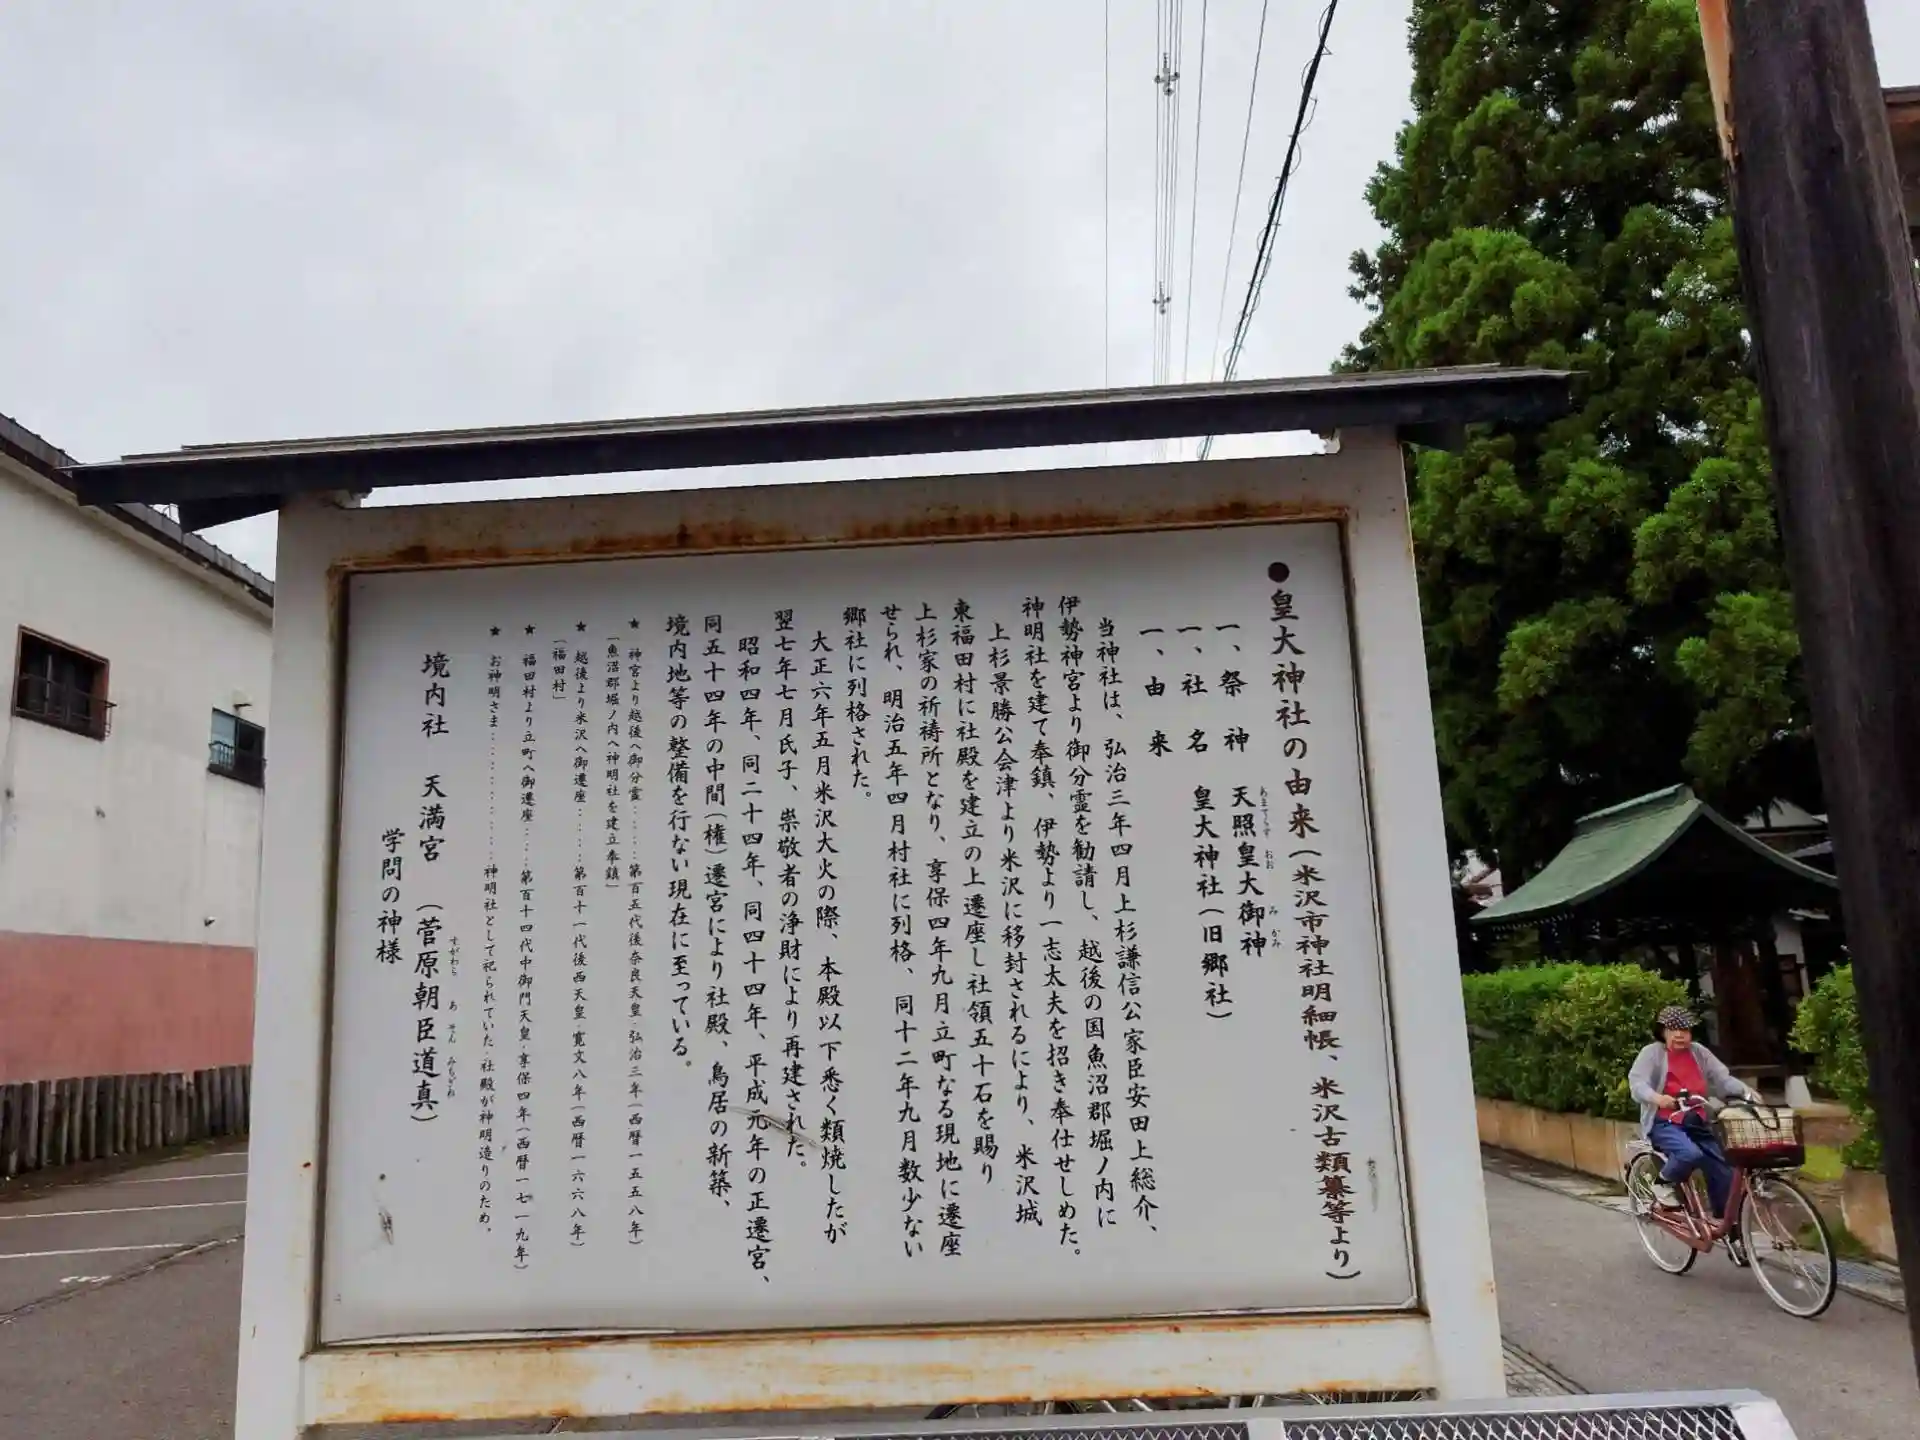 ●皇大神社の由来(米沢市神社明細帳、米沢古類纂等より)
一、祭神 天照皇大御神
あまてらす おお み かみ
一、社名 皇大神社(旧郷社)
一、由来
当神社は、弘治三年四月上杉謙信公家臣安田上総介、
伊勢神宮より御分霊を勧請し、越後の国魚沼郡堀ノ内に
神明社を建て奉鎮、伊勢より一志太夫を招き奉仕せしめた。
上杉景勝公会津より米沢に移封されるにより、米沢城
東福田村に社殿を建立の上遷座し社領五十石を賜り
上杉家の祈祷所となり、享保四年九月立町なる現地に遷座
せられ、明治五年四月村社に列格、同十二年九月数少ない
郷社に列格された。
大正六年五月米沢大火の際、本殿以下悉く類焼したが
翌七年七月氏子、崇敬者の浄財により再建された。
昭和四年、同二十四年、同四十四年、平成元年の正遷宮、
同五十四年の中間(権)遷宮により社殿、鳥居の新築、
境内地等の整備を行ない現在に至っている。
★ 神宮より越後へ御分霊‥‥‥第百五代後奈良天皇・弘治三年(西暦一五五八年)
「魚沼郡堀ノ内へ神明社を建立奉鎮」
★ 越後より米沢へ御遷座‥‥‥第百十一代後西天皇・寛文八年(西暦一六六八年)
「福田村」
★ 福田村より立町へ御遷座‥‥‥第百十四代中御門天皇・享保四年(西暦一七一九年)
★ お神明さま‥‥‥‥‥‥‥神明社として祀られていた・社殿が神明造りのため。
境内社 天満宮 (菅原朝臣道真)
すがわら あ そん みちざね
学問の神様